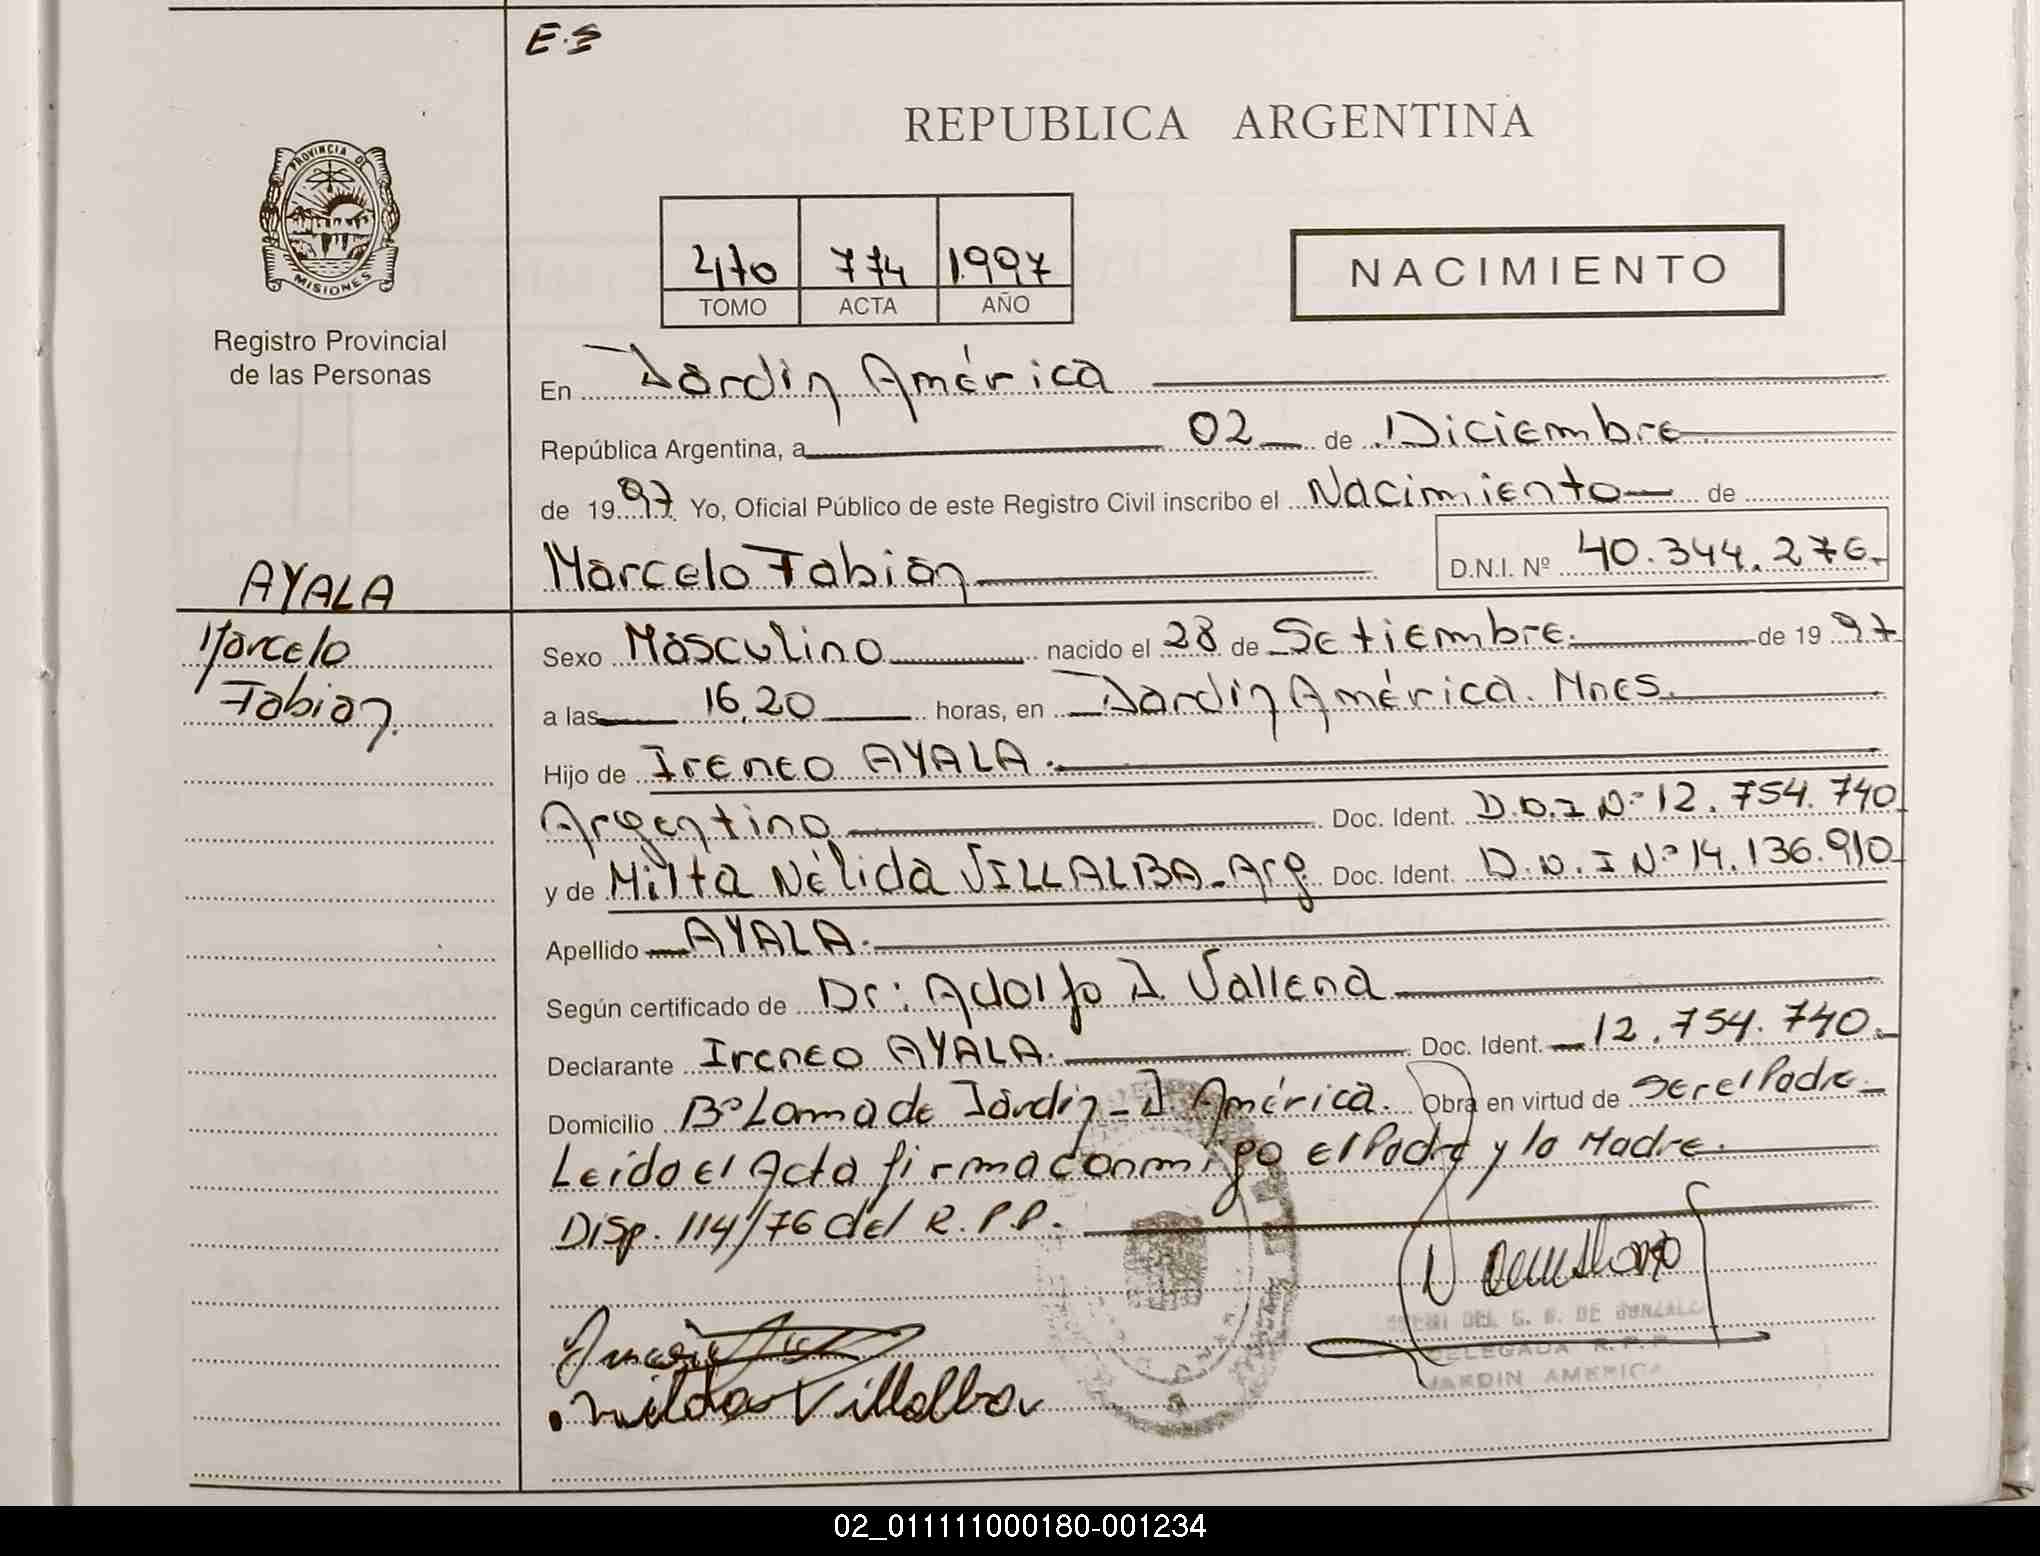 E.S
REPUBLICA ARGENTINA
PROVINCIA DE
MISIONES
Registro Provincial
de las Personas
470 774 1997
TOMO ACTA AÑO
NACIMIENTO
En Jardín América
República Argentina, a 02 de Diciembre
de 1997 Yo, Oficial Público de este Registro Civil inscribo el Nacimiento de
Marcelo Fabian D.N.I. Nº 40.344.276.
AYALA
Marcelo
Fabian.
Sexo Masculino nacido el 28 de Setiembre. de 1997
a las 16,20 horas, en Jardín América. Mnes.
Hijo de Ireneo AYALA.
Argentino Doc. Ident. D.N.I Nº 12.754.740
y de Milta Nélida VILLALBA - Arg. Doc. Ident. D.N.I Nº 14.136.910
Apellido AYALA.
Según certificado de Dr: Adolfo J. Vallena
Declarante Ireneo AYALA. Doc. Ident. 12.754.740.
Domicilio Bº Loma de Jardín - J. América. Obra en virtud de ser el Padre.
Leído el Acta firma conmigo el Padre y la Madre.
Disp. 114/76 del R.P.P.
DEL C. B. DE GONZALE
DELEGADA R.P.P.
JARDIN AMERICA
Villalba
02_011111000180-001234